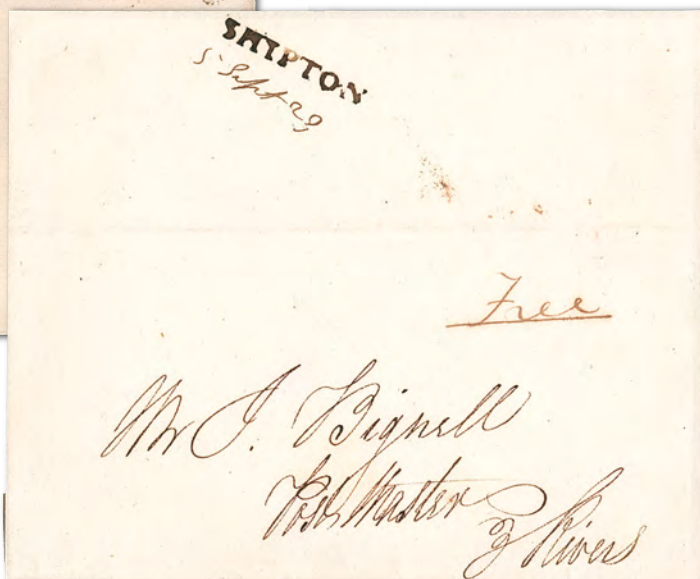 SHIPTON
5 Sept 29
Free
Mr J. Bignell
Post Master
3 Rivers